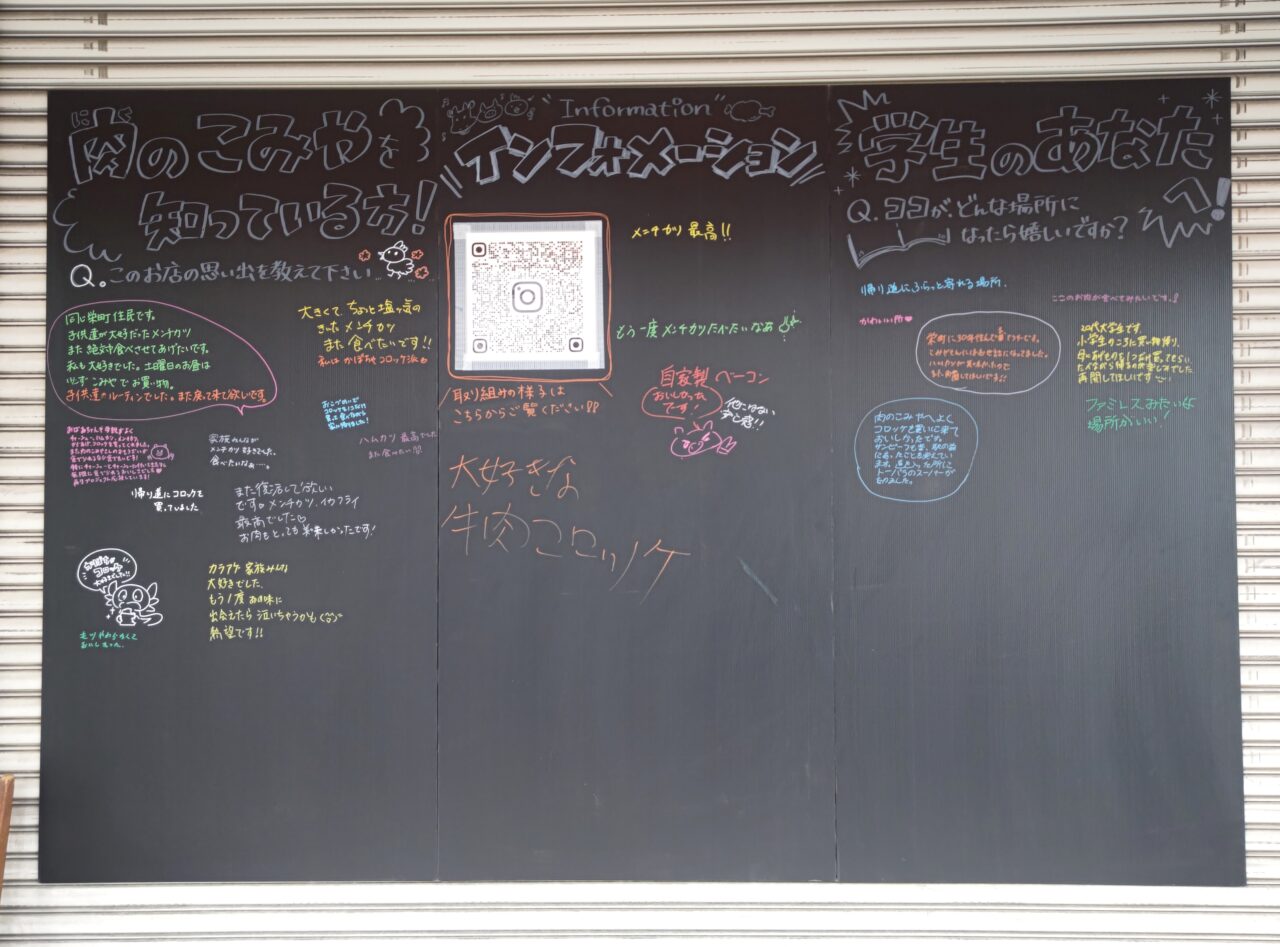 肉のこみやを
知っている方!
Q.このお店の思い出を教えて下さい…
同じ栄町住民です。
子供達が大好だったメンチカツ
また絶対食べさせてあげたいです。
私も大好きでした。土曜日のお昼は
必ずこみやでお買い物。
子供達のルーティンでした。また戻って来て欲しいです。
大きくて、ちょっと塩っ気の
きいたメンチカツ
また食べたいです!!
私はかぼちゃコロッケ派
家族みんなが
メンチカツ好きでした。
食べたいなぁ…。
ハムカツ最高でした
また食べたい
帰り道にコロッケを
買っていました
また復活して欲しい
です。メンチカツ、イカフライ
最高でした♡
お肉もとっても美味しかったです!
大好きでした!!
カラアゲ家族みんな
大好きでした。
もう1度お味に
出会えたら泣いちゃうかも
熱望です!!
"Information"
インフォメーション
メンチカツ最高!!
もう一度メンチカツたべたいなぁ
取り組みの様子は
こちらからご覧ください!!
自家製ベーコン
おいしかった
です!
大好きな
牛肉コロッケ
学生のあなた
へ!
Q.ココが、どんな場所に
なったら嬉しいですか?
帰り道にふらっと寄れる場所。
ここのお肉が食べてみたいです!
かわいい所♥
20代大学生です
小学生のころに買い物帰り、
再開してほしいです
ファミレスみたいな
場所がいい!
肉のこみやへよく
コロッケを買いに来て
おいしかったです。